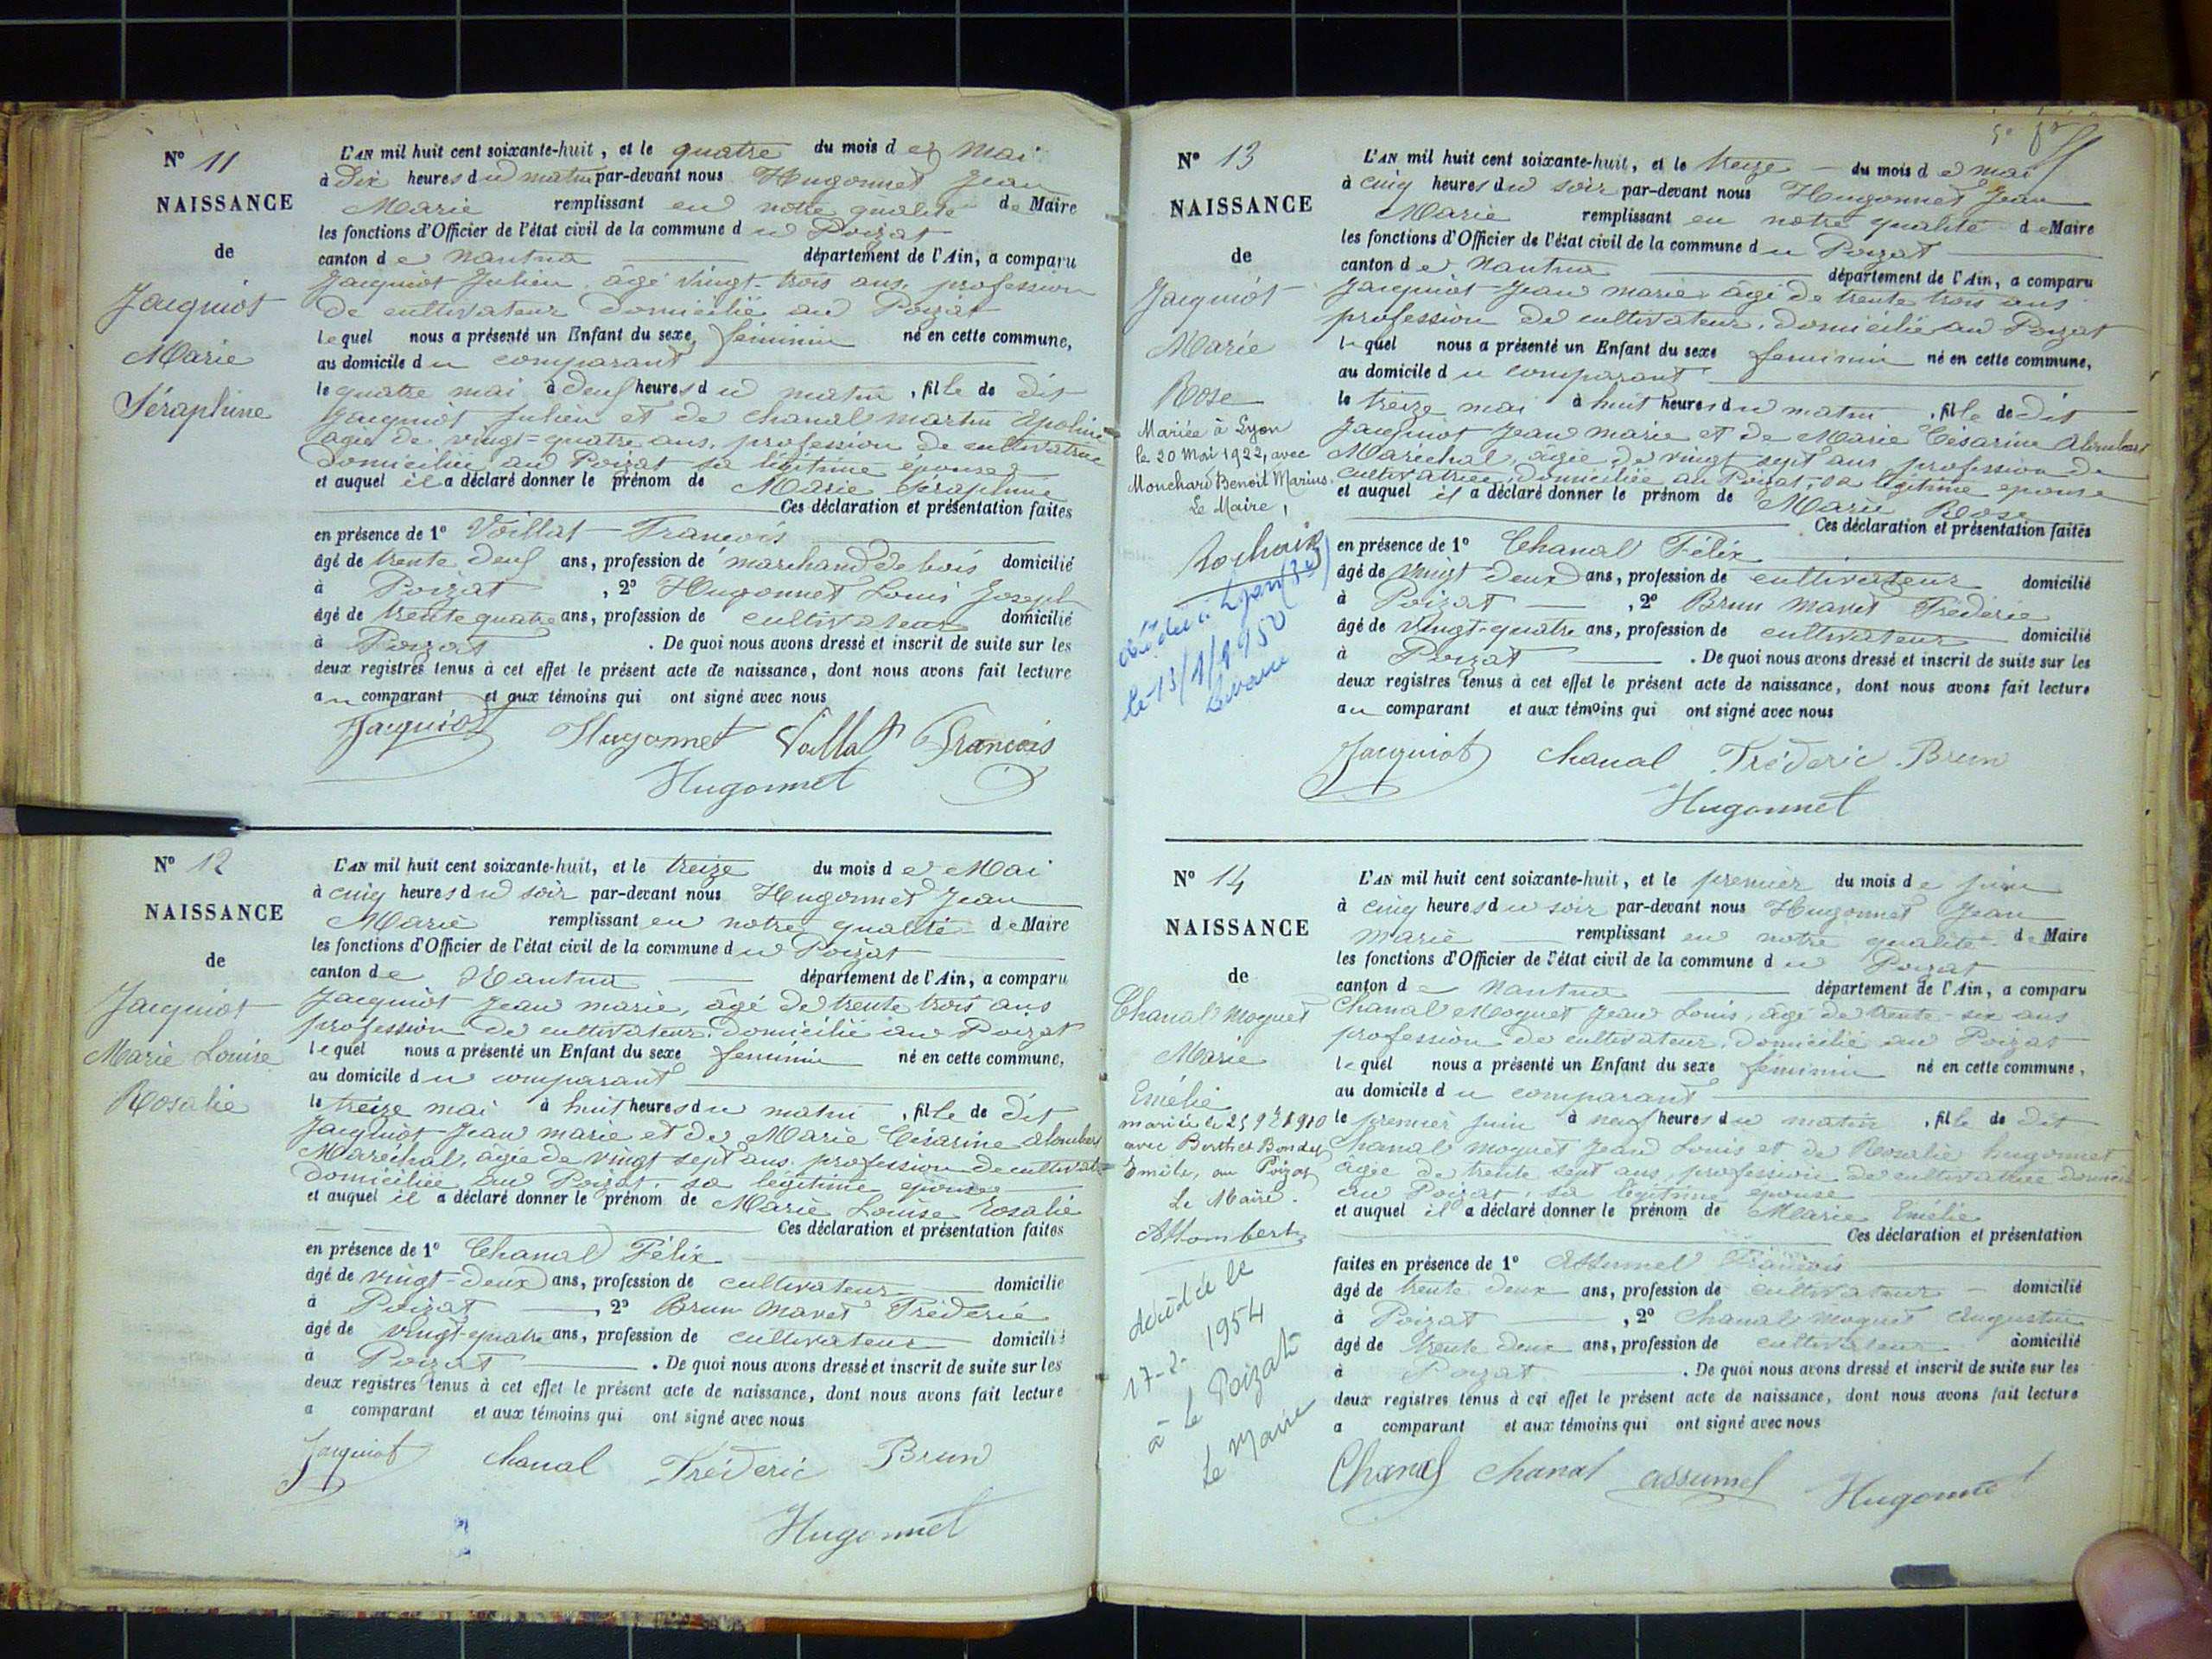 N° 11
NAISSANCE
de
Jacquiot
Marie
Séraphine
L'AN mil huit cent soixante-huit, et le quatre du mois de Mai
à Dix heures du matin par-devant nous Hugonnet Jean
Marie remplissant en notre qualité de Maire
les fonctions d'Officier de l'état civil de la commune du Poizat
canton de Nantua département de l'Ain, a comparu
Jacquiot Julien âgé vingt-trois ans, profession
de cultivateur domicilié au Poizat
lequel nous a présenté un Enfant du sexe féminin né en cette commune,
au domicile du comparant
le quatre mai à deux heures du matin, fille de dit
Jacquiot Julien et de Chanal martin Apoline
agée de vingt=quatre ans, profession de cultivatrice
domiciliée au Poizat sa légitime épouse
et auquel il a déclaré donner le prénom de Marie Séraphine
Ces déclaration et présentation faites
en présence de 1° Voillat François
âgé de trente deux ans, profession de marchand de bois domicilié
à Poizat, 2° Hugonnet Louis Joseph
âgé de trente quatre ans, profession de cultivateur domicilié
à Poizat. De quoi nous avons dressé et inscrit de suite sur les
deux registres tenus à cet effet le présent acte de naissance, dont nous avons fait lecture
au comparant et aux témoins qui ont signé avec nous
Jacquiot Hugonnet Voillat François
Hugonnet
N° 12
NAISSANCE
de
Jacquiot
Marie Louise
Rosalie
L'AN mil huit cent soixante-huit, et le treize du mois de Mai
à cinq heures du soir par-devant nous Hugonnet Jean
Marie remplissant en notre qualité de Maire
les fonctions d'Officier de l'état civil de la commune du Poizat
canton de Nantua département de l'Ain, a comparu
Jacquiot Jean marie, âgé de trente trois ans
profession de cultivateur, domicilié au Poizat
lequel nous a présenté un Enfant du sexe féminin né en cette commune,
au domicile du comparant
le treize mai à huit heures du matin, fille de dit
Jacquiot Jean marie et de Marie Césarine Alombert
Maréchal, agée de vingt sept ans, profession de cultivatrice
domiciliée au Poizat, sa légitime épouse
et auquel il a déclaré donner le prénom de Marie Louise Rosalie
Ces déclaration et présentation faites
en présence de 1° Chanal Félix
âgé de vingt-deux ans, profession de cultivateur domicilié
à Poizat, 2° Brun Mavet Fréderic
âgé de vingt-quatre ans, profession de cultivateur domicilié
à Poizat. De quoi nous avons dressé et inscrit de suite sur les
deux registres tenus à cet effet le présent acte de naissance, dont nous avons fait lecture
a comparant et aux témoins qui ont signé avec nous
Jacquiot Chanal Fréderic Brun
Hugonnet
N° 13
NAISSANCE
de
Jacquiot
Marie
Rose
Mariée à Lyon
le 20 Mai 1922, avec
Monchard Benoît Marius.
Le Maire,
décédée à Lyon
le 13/1/1950
L'AN mil huit cent soixante-huit, et le treize du mois de mai
à cinq heures du soir par-devant nous Hugonnet Jean
Marie remplissant en notre qualité de Maire
les fonctions d'Officier de l'état civil de la commune du Poizat
canton de Nantua département de l'Ain, a comparu
Jacquiot Jean marie âgé de trente trois ans
profession de cultivateur, domicilié au Poizat
lequel nous a présenté un Enfant du sexe féminin né en cette commune,
au domicile du comparant
le treize mai à huit heures du matin, fille de dit
Jacquiot Jean marie et de Marie Césarine Alombert
Maréchal, agée de vingt sept ans profession de
cultivatrice, domiciliée au Poizat, sa légitime épouse
et auquel il a déclaré donner le prénom de Marie Rose
Ces déclaration et présentation faites
en présence de 1° Chanal Félix
âgé de vingt deux ans, profession de cultivateur domicilié
à Poizat, 2° Brun Mavet Fréderic
âgé de vingt-quatre ans, profession de cultivateur domicilié
à Poizat. De quoi nous avons dressé et inscrit de suite sur les
deux registres tenus à cet effet le présent acte de naissance, dont nous avons fait lecture
au comparant et aux témoins qui ont signé avec nous
Jacquiot Chanal Fréderic Brun
Hugonnet
N° 14
NAISSANCE
de
Chanal Moquet
Marie
Emélie
mariée le 25 9bre 1910
avec Berthet Bondet
Emile, au Poizat
Le Maire.
Allombert
décédée le
17-2-1954
à Le Poizat
Le Maire
L'AN mil huit cent soixante-huit, et le premier du mois de juin
à cinq heures du soir par-devant nous Hugonnet Jean
Marie remplissant en notre qualité de Maire
les fonctions d'Officier de l'état civil de la commune du Poizat
canton de Nantua département de l'Ain, a comparu
Chanal Moquet Jean Louis, âgé de trente-six ans
profession de cultivateur, domicilié au Poizat
lequel nous a présenté un Enfant du sexe féminin né en cette commune,
au domicile du comparant
le premier juin à neuf heures du matin, fille de dit
Chanal moquet Jean Louis et de Rosalie hugonnet
agée de trente sept ans, profession de cultivatrice domicil
au Poizat, sa légitime épouse
et auquel il a déclaré donner le prénom de Marie Emélie
Ces déclaration et présentation
faites en présence de 1° Assumel François
âgé de trente deux ans, profession de cultivateur domicilié
à Poizat, 2° Chanal moquet Augustin
âgé de trente deux ans, profession de cultivateur domicilié
à Poizat. De quoi nous avons dressé et inscrit de suite sur les
deux registres tenus à cet effet le présent acte de naissance, dont nous avons fait lecture
a comparant et aux témoins qui ont signé avec nous
Chanal Chanal assumel Hugonnet